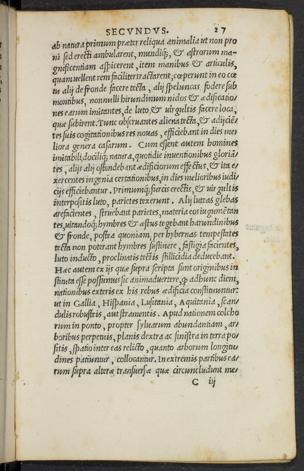 SECVNDVS. 27
ab natura primum præter reliqua animalia ut non pro
ni sed erecti ambularent, mundiq;, & astrorum ma-
gnificentiam aspicerent, item manibus & articulis,
quam uellent rem faciliter tractarent, cœperunt in eo cœ
tu alij de fronde facere tecta, alij speluncas fodere sub
montibus, nonnulli hirundinum nidos & ædificatio
nes earum imitantes, de luto, & uirgultis facere loca,
quæ subirent. Tunc obseruantes aliena tecta, & adijcien
tes suis cogitationibus res nouas, efficiebant in dies me
liora genera casarum. Cum essent autem homines
imitabili, dociliq; natura, quotidie inuentionibus glorian
tes, alijs alij ostendebant ædificiorum effectus, & ita ex
ercentes ingenia certationibus, in dies melioribus iudi
cijs efficiebantur. Primumq; furcis erectis, & uirgultis
interpositis luto, parietes texerunt. Alij luteas glebas
arefacientes, struebant parietes, materia eos iugumentan
tes, uitandoq; hymbres & æstus tegebant harundinibus
& fronde, postea quoniam per hybernas tempestates
tecta non poterant hymbres sustinere, fastigia facientes,
luto inducto, proclinatis tectis stillicidia deducebant.
Hæc autem ex ijs quæ supra scripta sunt originibus in
stituta esse possumus sic animaduertere, q adhunc diem,
nationibus exteris ex his rebus ædificia constituuntur:
ut in Gallia, Hispania, Lusitania, Aquitania, scan-
dulis robustis, aut stramentis. Apud nationem colcho
rum in ponto, propter syluarum abundantiam, ar-
boribus perpetuis, planis dextra ac sinistra in terra po
sitis, spatio inter eas relicto, quanto arborum longitu
dines patiuntur, collocantur. In extremis partibus ea-
rum supra alteræ transuersæ quæ circuncludunt me-
C iij